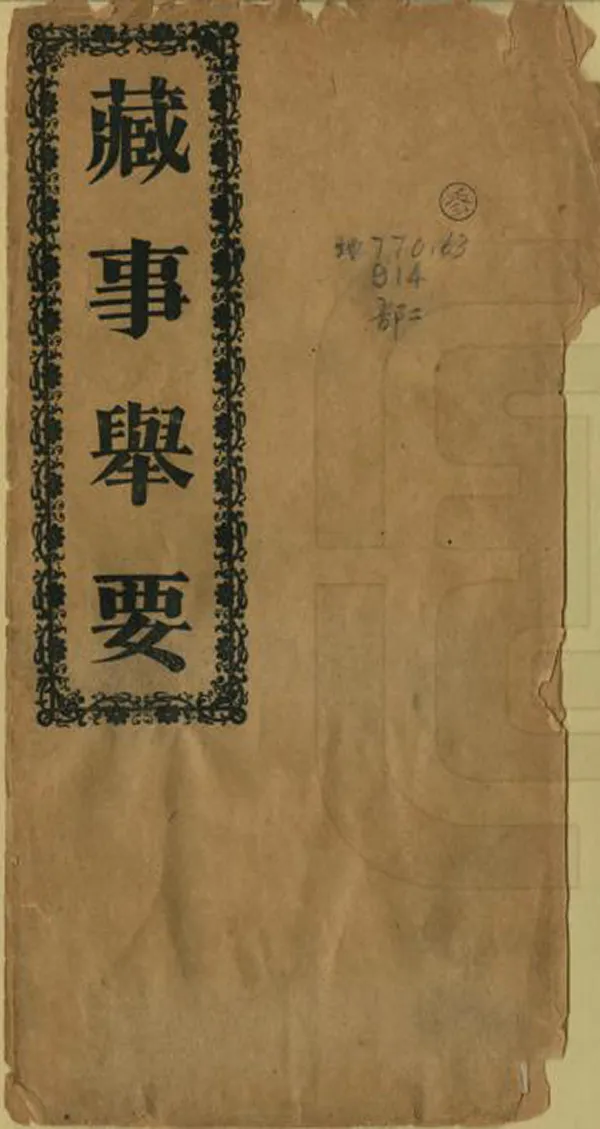 藏事舉要
叄
地770.63
B14
部二